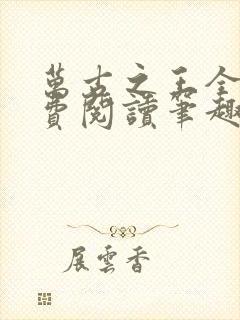 萬古之王全
費閱讀筆趣
展雲香